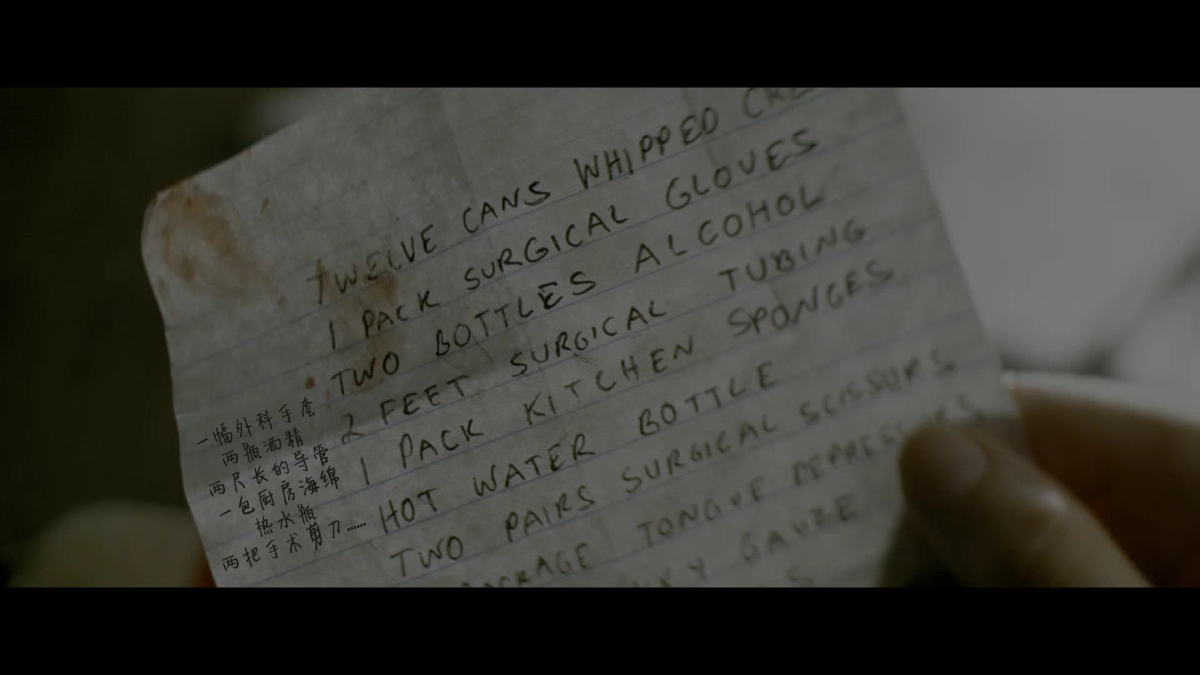 TWELVE CANS WHIPPED
1 PACK SURGICAL GLOVES
TWO BOTTLES ALCOHOL
2 FEET SURGICAL TUBING
1 PACK KITCHEN SPONGES
HOT WATER BOTTLE
TWO PAIRS SURGICAL SCISSORS
TONGUE
GAUZE
一幅外科手套
两瓶酒精
两尺长的导管
一包厨房海绵
热水瓶
两把手术剪刀……